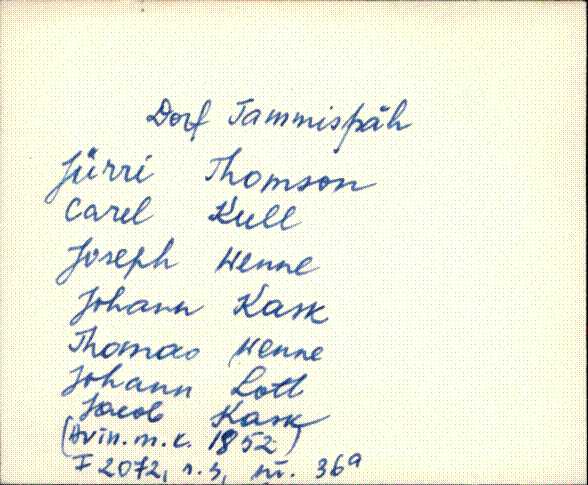 Dorf Tammispäh
Jürri Thomson
Carel Kull
Joseph Wenne
Johann Kask
Thomas Wenne
Johann Lott
Jacob Kask
(Avin. m. k. 1852)
I 2072, n. s, nr. 36a